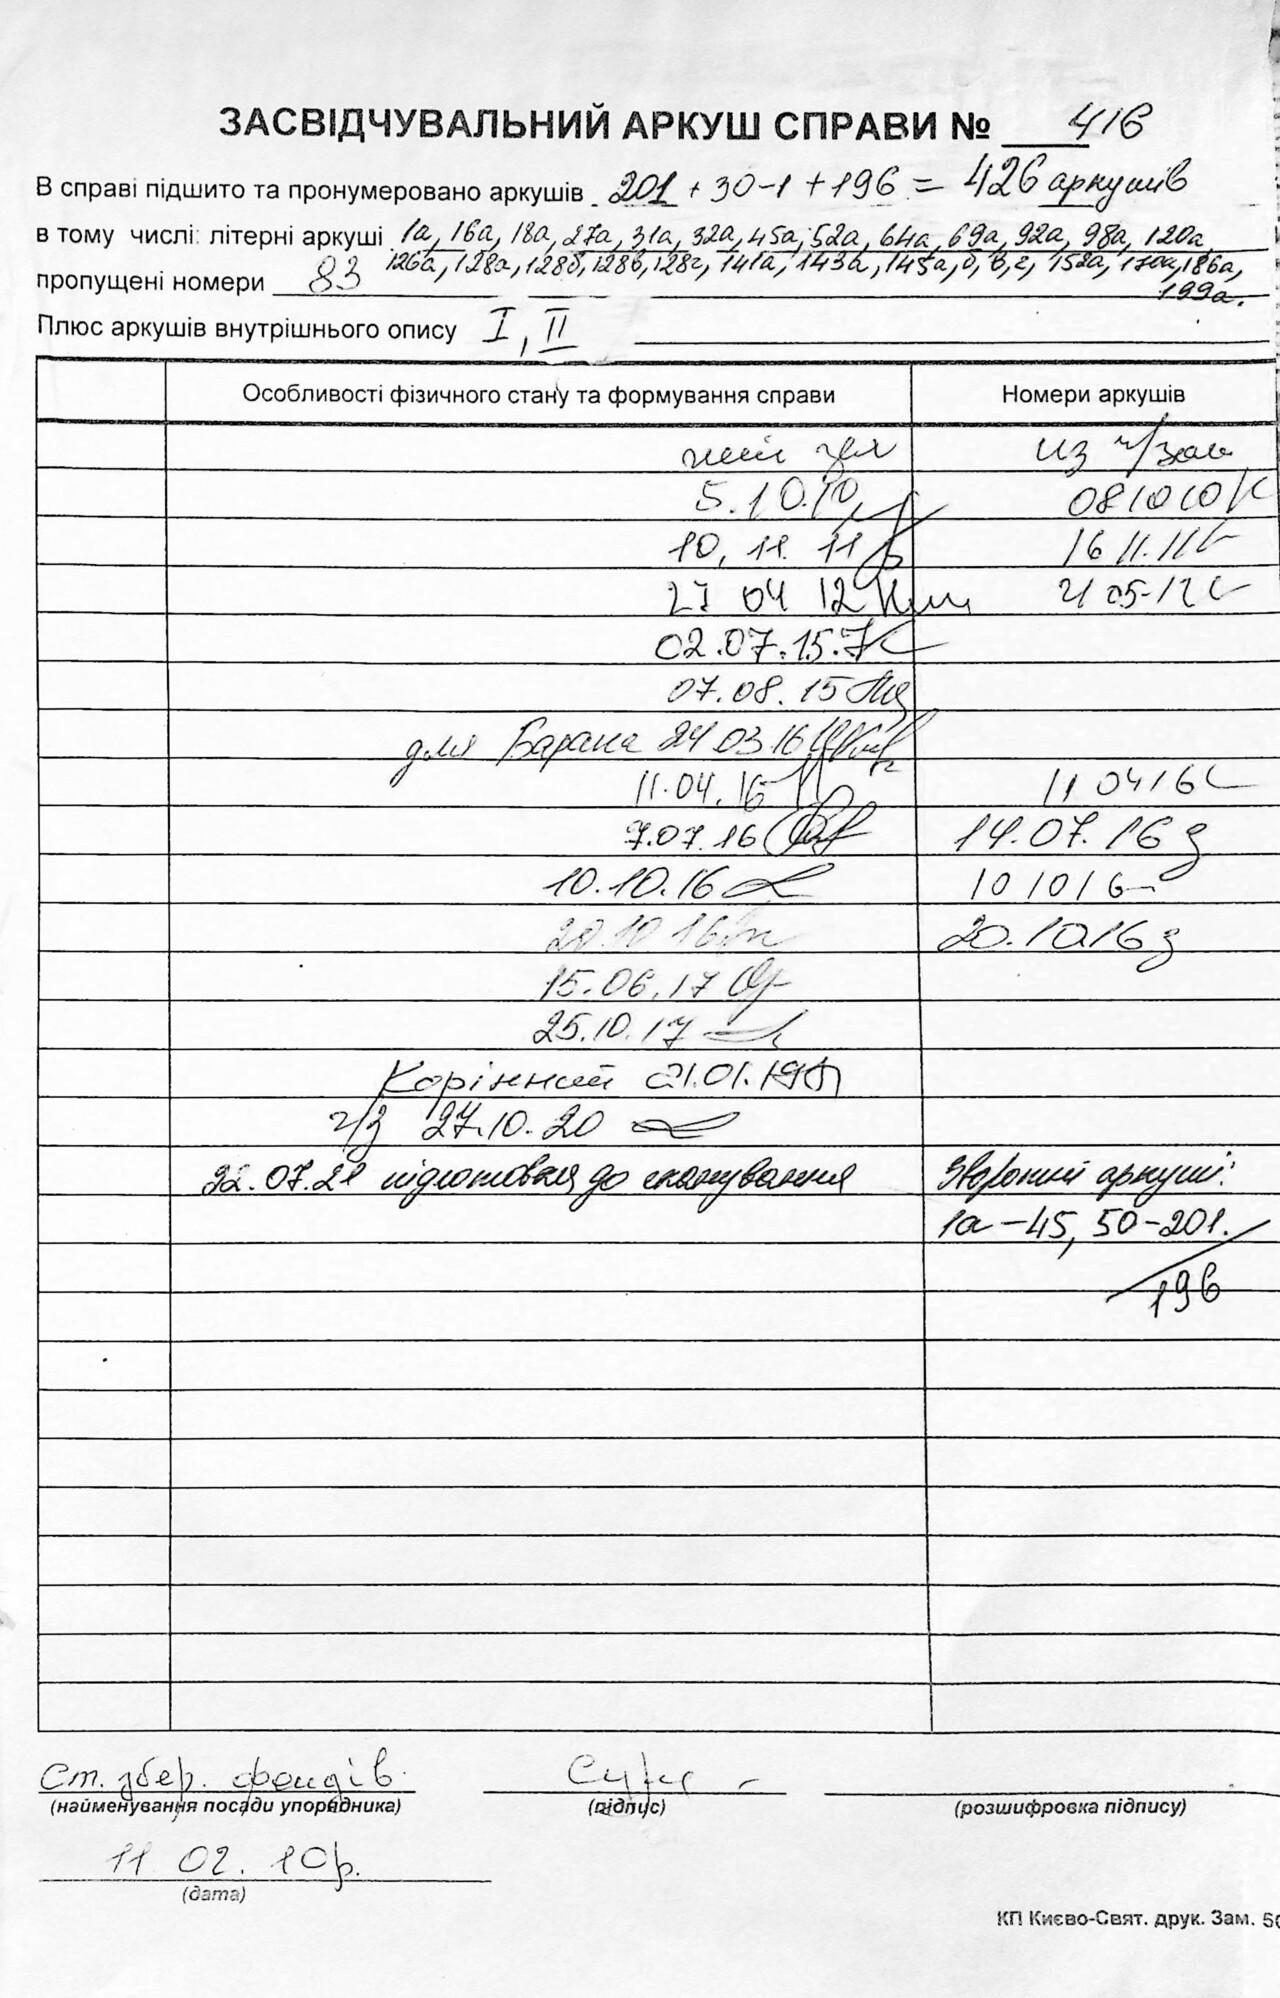 ЗАСВІДЧУВАЛЬНИЙ АРКУШ СПРАВИ № 416
В справі підшито та пронумеровано аркушів 201 + 30-1 + 196 = 426 аркушів
в тому числі: літерні аркуші 1а, 16а, 18а, 27а, 31а, 32а, 45а, 52а, 64а, 69а, 92а, 98а, 120а,
126а, 128а, 128б, 128в, 128г, 141а, 143а, 145а, б, в, г, 152а, 170а, 186а,
199а.
пропущені номери 83
Плюс аркушів внутрішнього опису I, II
Особливості фізичного стану та формування справи Номери аркушів
из ч/зала
5.10.10 081010
10.11.11 16 11.11
27 04 12 21 05-12
02.07.15
07.08.15
для Барана 24 03.16
11.04.16 11 04 16
7.07.16 14.07.16
10.10.16 10 10 16
20.10 16 20.10.16
15.06.17
25.10.17
Корінний 21.01.19
ч/з 27.10.20
22.07.21 підготовка до сканування Зворотний аркуші:
1а-45, 50-201.
196
Ст. збер. фондів.
(найменування посади упорядника) (підпис) (розшифровка підпису)
11 02. 10р.
(дата)
КП Києво-Свят. друк. Зам.